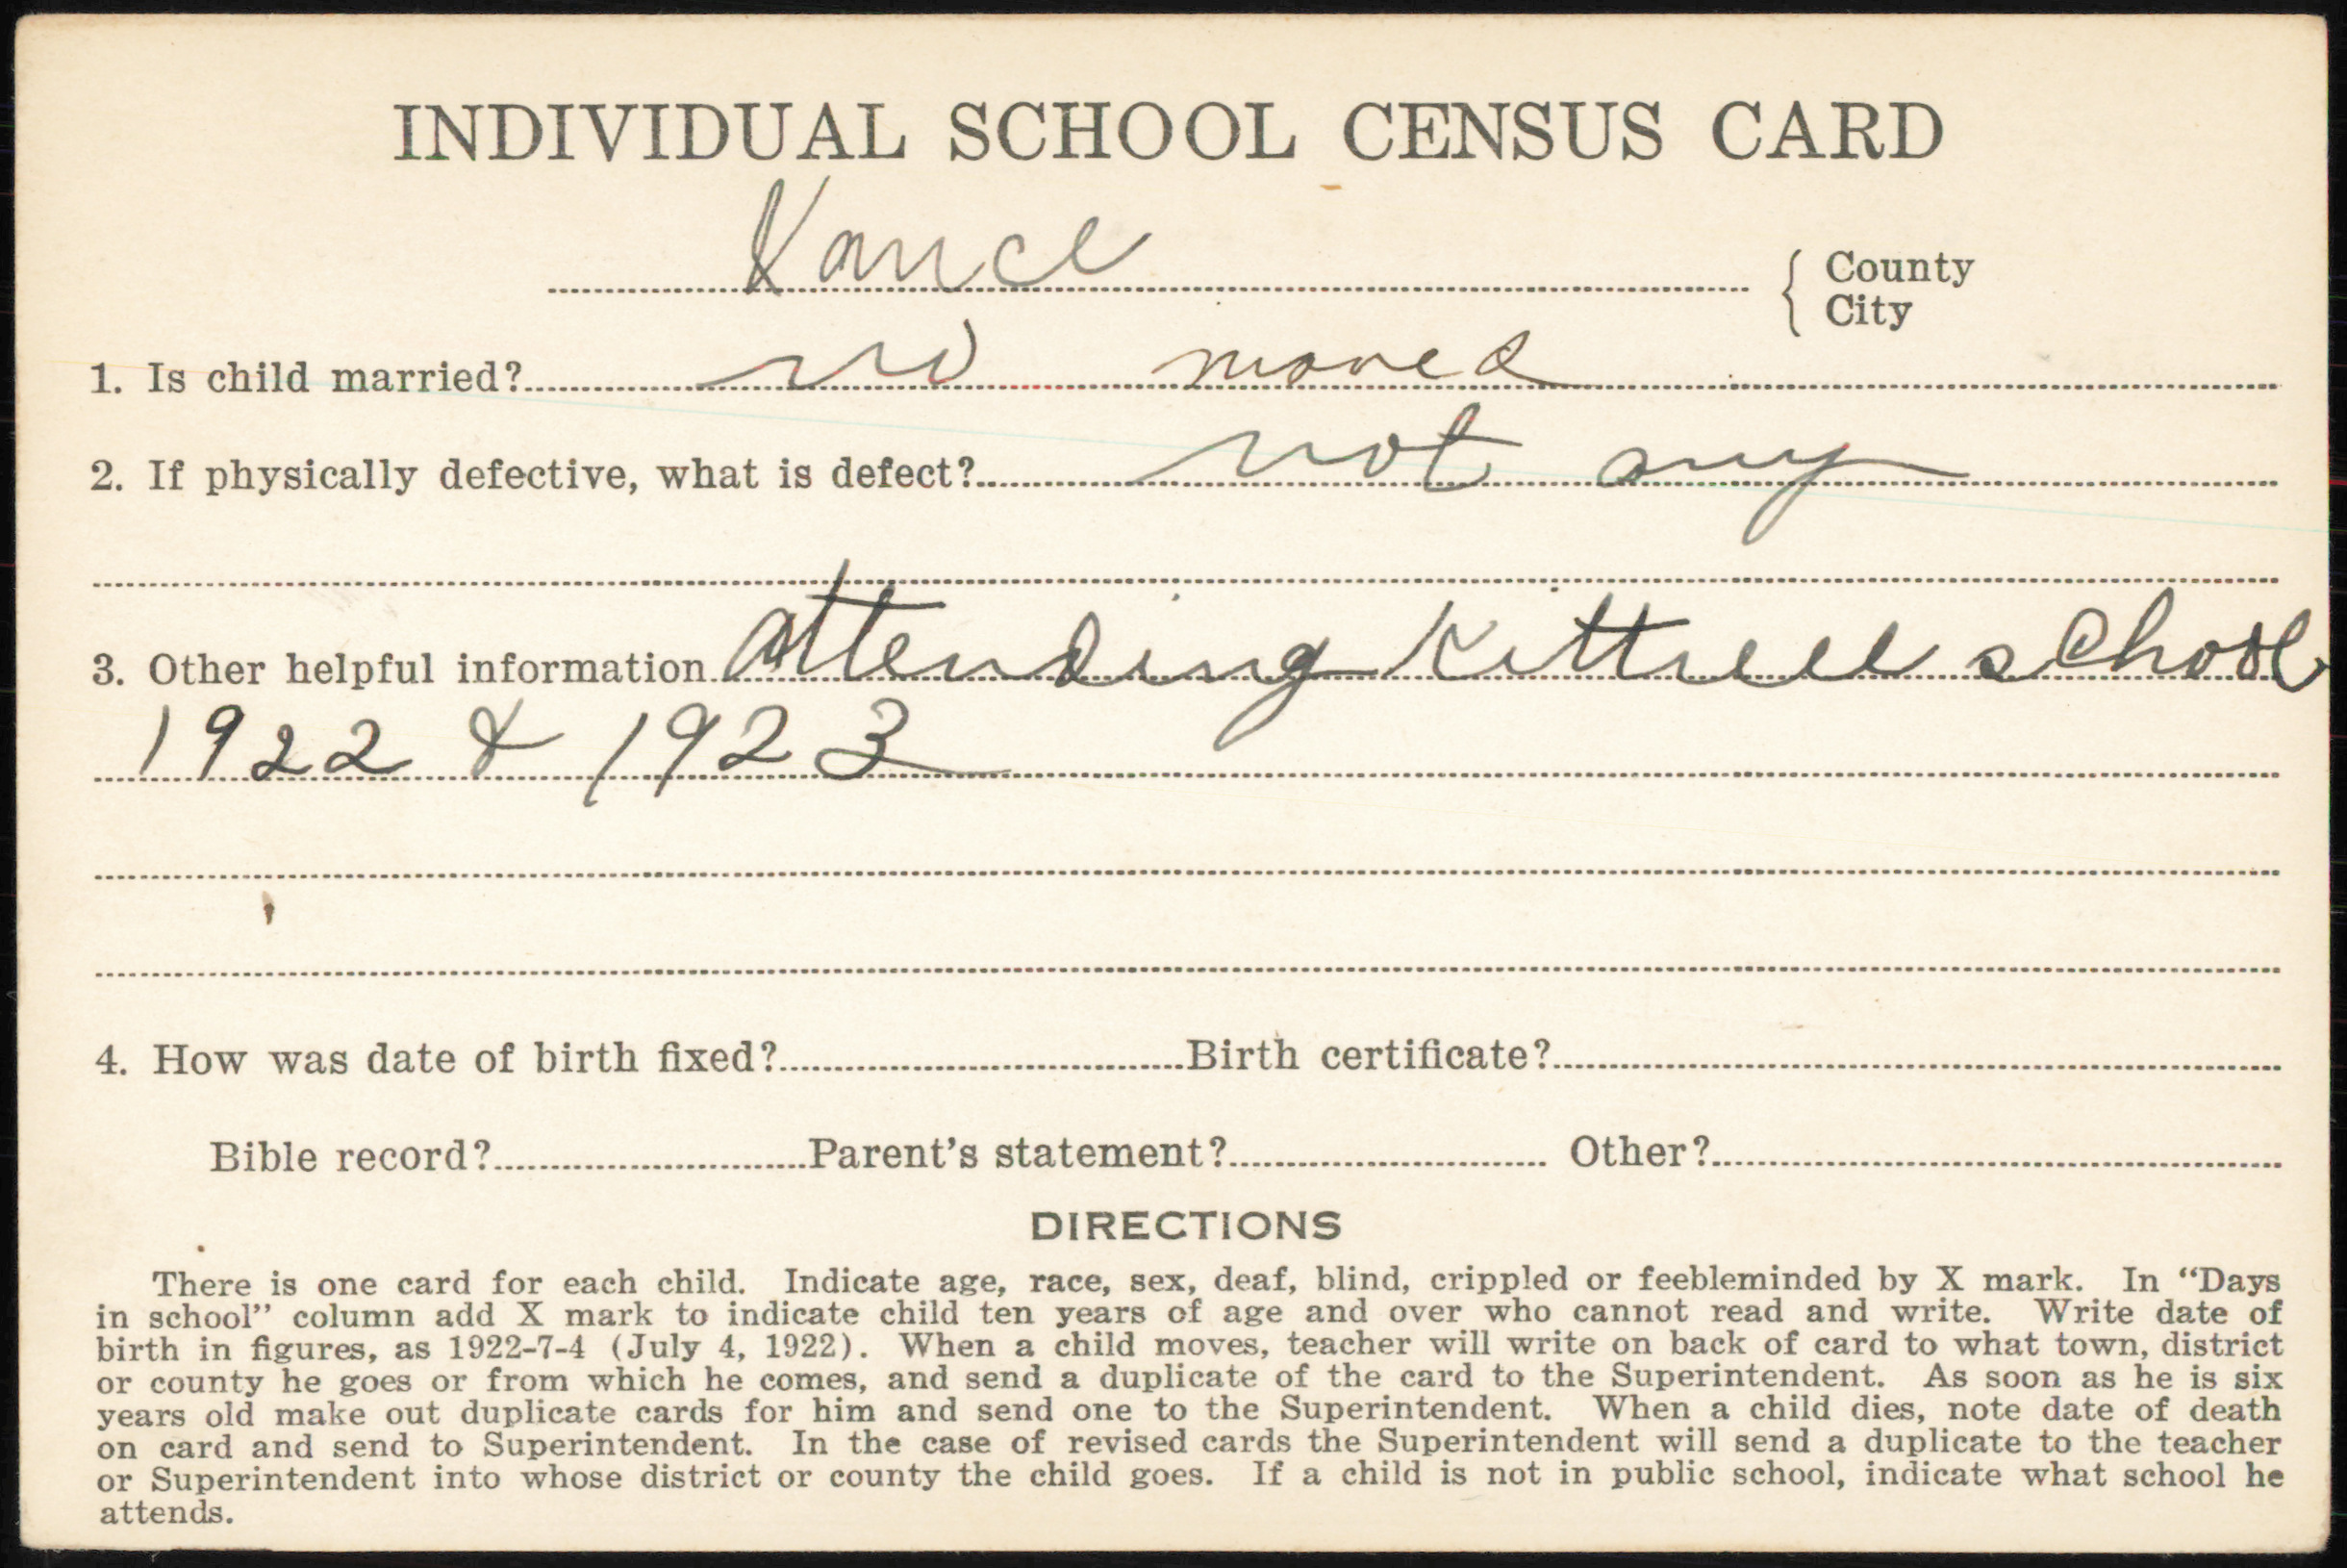 INDIVIDUAL SCHOOL CENSUS CARD
Vance { County
City
1. Is child married? no moved
2. If physically defective, what is defect? not any
3. Other helpful information attending Kittrell school
1922 & 1923
4. How was date of birth fixed? Birth certificate?
Bible record? Parent's statement? Other?
DIRECTIONS
There is one card for each child. Indicate age, race, sex, deaf, blind, crippled or feebleminded by X mark. In “Days
in school” column add X mark to indicate child ten years of age and over who cannot read and write. Write date of
birth in figures, as 1922-7-4 (July 4, 1922). When a child moves, teacher will write on back of card to what town, district
or county he goes or from which he comes, and send a duplicate of the card to the Superintendent. As soon as he is six
years old make out duplicate cards for him and send one to the Superintendent. When a child dies, note date of death
on card and send to Superintendent. In the case of revised cards the Superintendent will send a duplicate to the teacher
or Superintendent into whose district or county the child goes. If a child is not in public school, indicate what school he
attends.